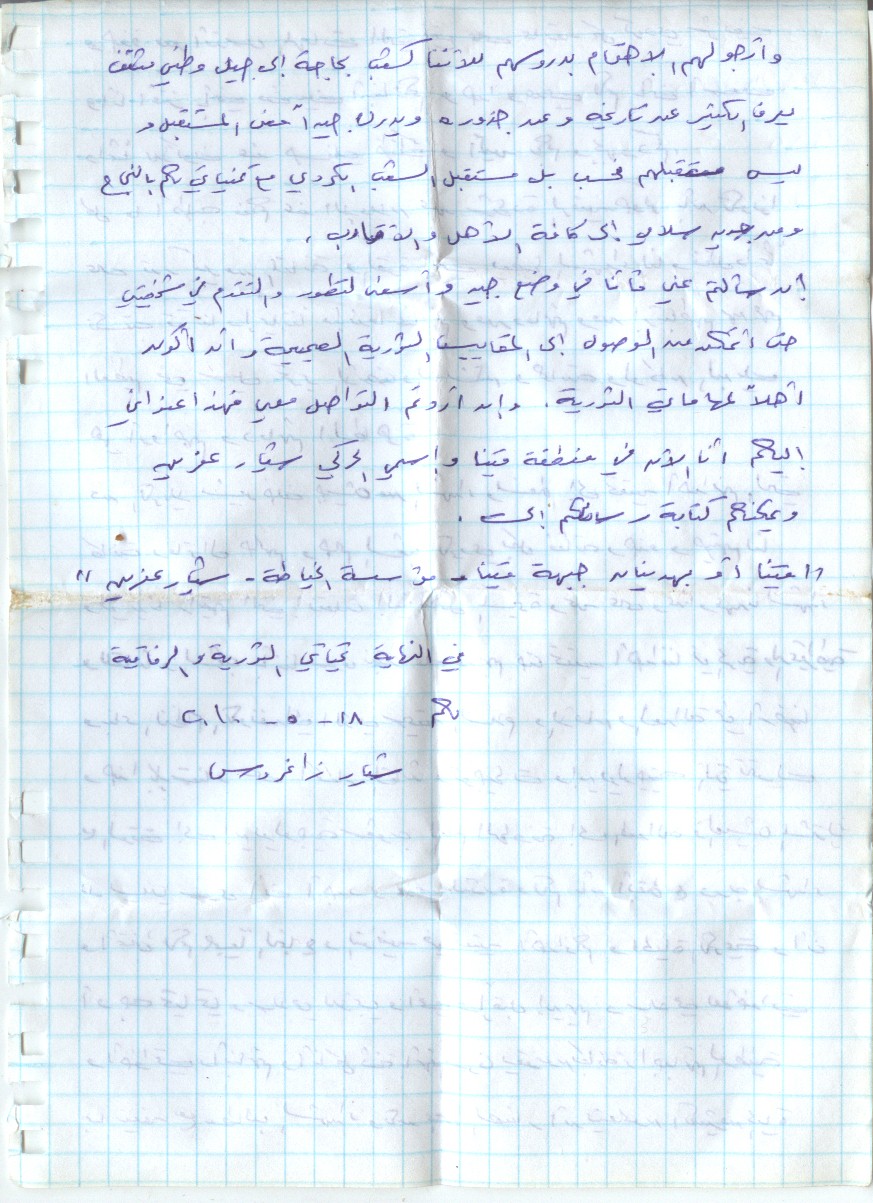 وأرجو لهم الاهتمام بدروسهم للأننا كشعب بحاجة إلى جيل وطني مثقف
يعرف الكثير عن تاريخه وعن جذوره ويدرك جيداً معنى المستقبل و
ليس مستقبلهم فحسب بل مستقبل الشعب الكردي مع تمنياتي لكم بالنجاح
ومن جديد سلامي إلى كافة الأهل والأقارب .
إن سألتم عني فأنا في وضع جيد وأسعى لتطور والتقدم في شخصيتي
حتى أتمكن من الوصول إلى المقاييس الثورية الصميمية وأن أكون
أهلاً لمهماتي الثورية . وإن أردتم التواصل معي فهذا عنواني
إليكم أنا الآن في منطقة متينا وإسمي الحركي شيار عفرين
ويمكنكم كتابة رسائلكم إلى .
"متينا أو بهدينان جبهة متينا - مؤسسة الخياطة - شيار عفرين"
في النهاية تحياتي الثورية والرفاقية
لكم ١٨ - ٥ -
شيار زاغروس